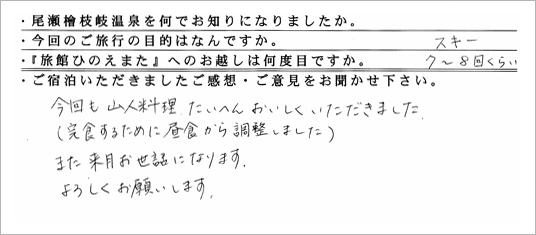 ・尾瀬檜枝岐温泉を何でお知りになりましたか。
・今回のご旅行の目的はなんですか。 スキー
・『旅館ひのえまた』へのお越しは何度目ですか。 7～8回くらい
・ご宿泊いただきましたご感想・ご意見をお聞かせ下さい。
今回も山人料理、たいへんおいしくいただきました。
(完食するために昼食から調整しました)
また来月お世話になります。
よろしくお願いします。